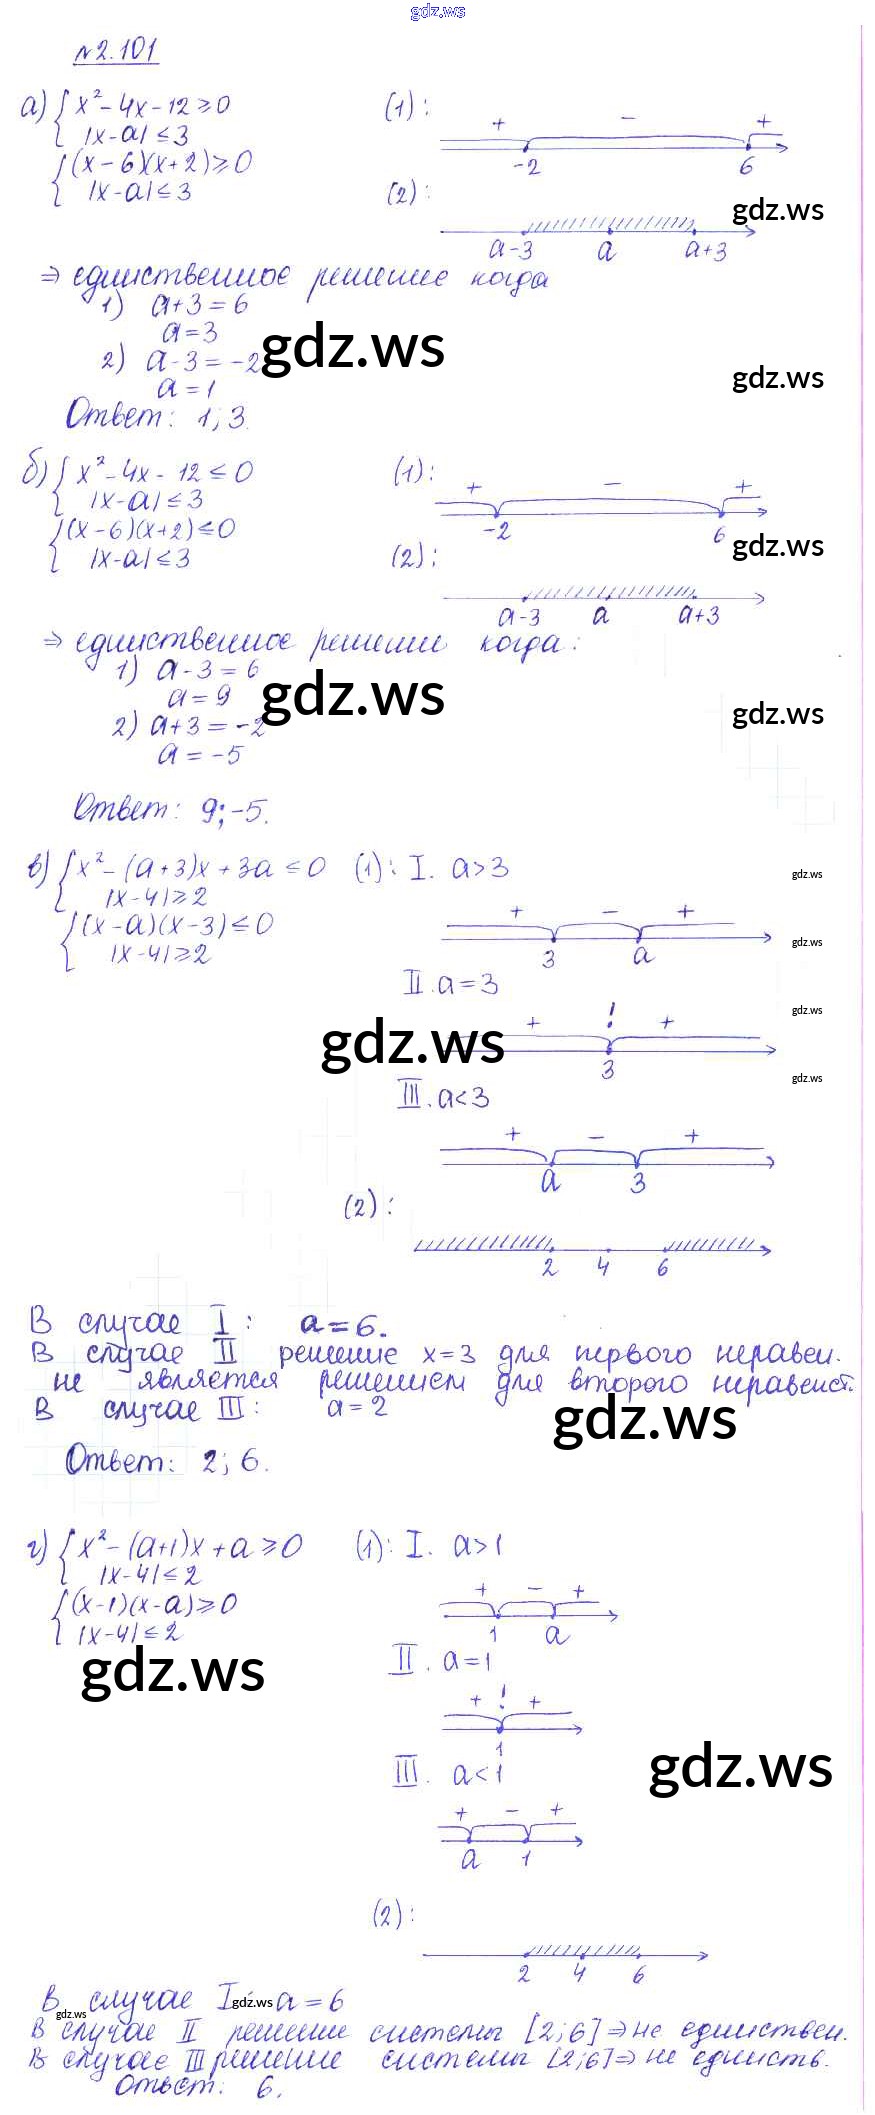 gdz.ws
№2.101
а) { x² - 4x - 12 ≥ 0
|x - a| ≤ 3
(1):
+ - +
-2 6
{ (x - 6)(x + 2) ≥ 0
|x - a| ≤ 3
(2):
gdz.ws
a-3 a a+3
⇒ единственное решение когда
1) a + 3 = 6
a = 3
2) a - 3 = -2
gdz.ws
a = 1
gdz.ws
Ответ: 1; 3.
б) { x² - 4x - 12 ≤ 0
|x - a| ≤ 3
(1):
+ - +
-2 6
{ (x - 6)(x + 2) ≤ 0
|x - a| ≤ 3
gdz.ws
(2):
a-3 a a+3
⇒ единственное решение когда:
1) a - 3 = 6
a = 9
gdz.ws
2) a + 3 = -2
gdz.ws
a = -5
Ответ: 9; -5.
в) { x² - (a + 3)x + 3a ≤ 0
|x - 4| ≥ 2
(1): I. a > 3
gdz.ws
{ (x - a)(x - 3) ≤ 0
|x - 4| ≥ 2
+ - +
3 a
gdz.ws
II. a = 3
gdz.ws
+ ! +
gdz.ws
3
gdz.ws
III. a < 3
+ - +
a 3
(2):
2 4 6
В случае I: a = 6.
В случае II решение x = 3 для первого неравен.
не является решением для второго неравенст.
В случае III: a = 2
gdz.ws
Ответ: 2; 6.
г) { x² - (a+1)x + a ≥ 0
|x - 4| ≤ 2
(1): I. a > 1
{ (x - 1)(x - a) ≥ 0
|x - 4| ≤ 2
+ - +
1 a
gdz.ws
II. a = 1
+ ! +
1
III. a < 1
gdz.ws
+ - +
a 1
(2):
2 4 6
В случае I gdz.ws a = 6
gdz.ws
В случае II решение системы [2; 6] ⇒ не единствен.
В случае III решение системы [2; 6] ⇒ не единств.
Ответ: 6.